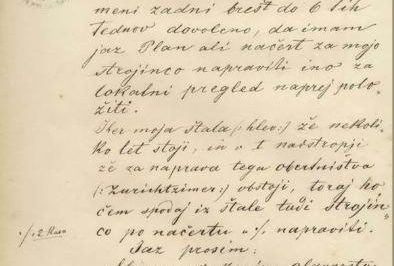 meni zadni brest do 6 tih
Tednov dovoleno, da imam
jaz Plan ali načert za mojo
strojinco napraviti ino za
lokalni pregled naprej polo-
žiti.
Ker moja Štala (:hlev:) že nekoli-
ko let stoji, in v I nadstropji
že za naprava tega obertništva
(:Zurichtzimer:) obstoji, toraj ho-
čem spodaj iz Štale tudi Strojin-
co po načertu ·/· napraviti.
·/· 2
Jaz prosim: